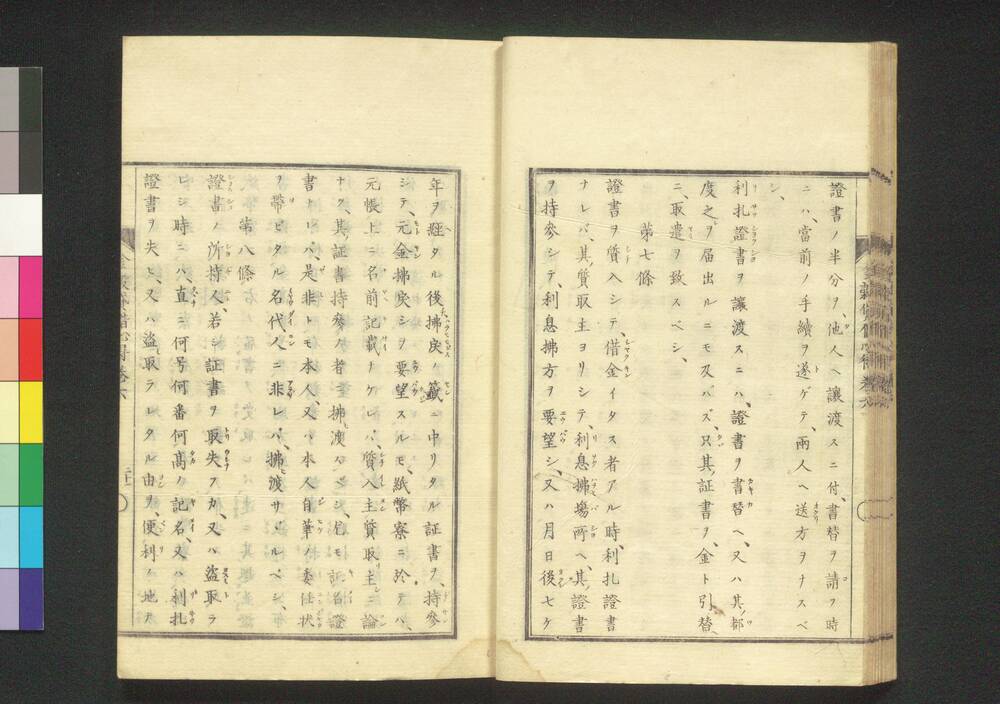 證書ノ半分ヲ、他人ヘ讓渡スニ付、書替ヲ請フ時
ニハ、當前ノ手續ヲ遂ゲテ、兩人ヘ送方ヲナスベ
シ、
利扎證書ヲ讓渡スニハ、證書ヲ書替ヘ、又ハ其ノ都
度之ヲ届出ルニモ及バズ、只其証書ヲ、金ト引替
ニ、取遣ヲ致スベシ、
第七條
證書ヲ質入シテ、借金イタス者アル時、利扎證書
ナレバ、其質取主ヨリシテ、利息拂場所ヘ、其證書
ヲ持參シテ、利息拂方ヲ要望シ、又ハ月日後七ケ
年ヲ經タル後、拂戻ノ籤ニ中リタル証書ヲ、持參
シテ、元金拂戻シヲ要望スルモ、紙幣寮ニ於テハ、
元帳上ニ名前記載ナケレバ、質入主質取主ニ論
ナク、其証書持參ノ者ニ拂渡スベシ、尤モ記名證
書ナレバ、是非トモ本人、又ハ本人自筆ノ委任状
ヲ帶ビタル名代人ニ非レバ、拂渡サヾルベシ、
第八條
證書ノ所持人、若シ証書ヲ取失フカ、又ハ盗取ラ
レシ時ニハ、直ニ何号何番何高ノ記名、又ハ利扎
證書ヲ失ヒ、又ハ盗取ラレタル由ヲ、便利ノ地ナ